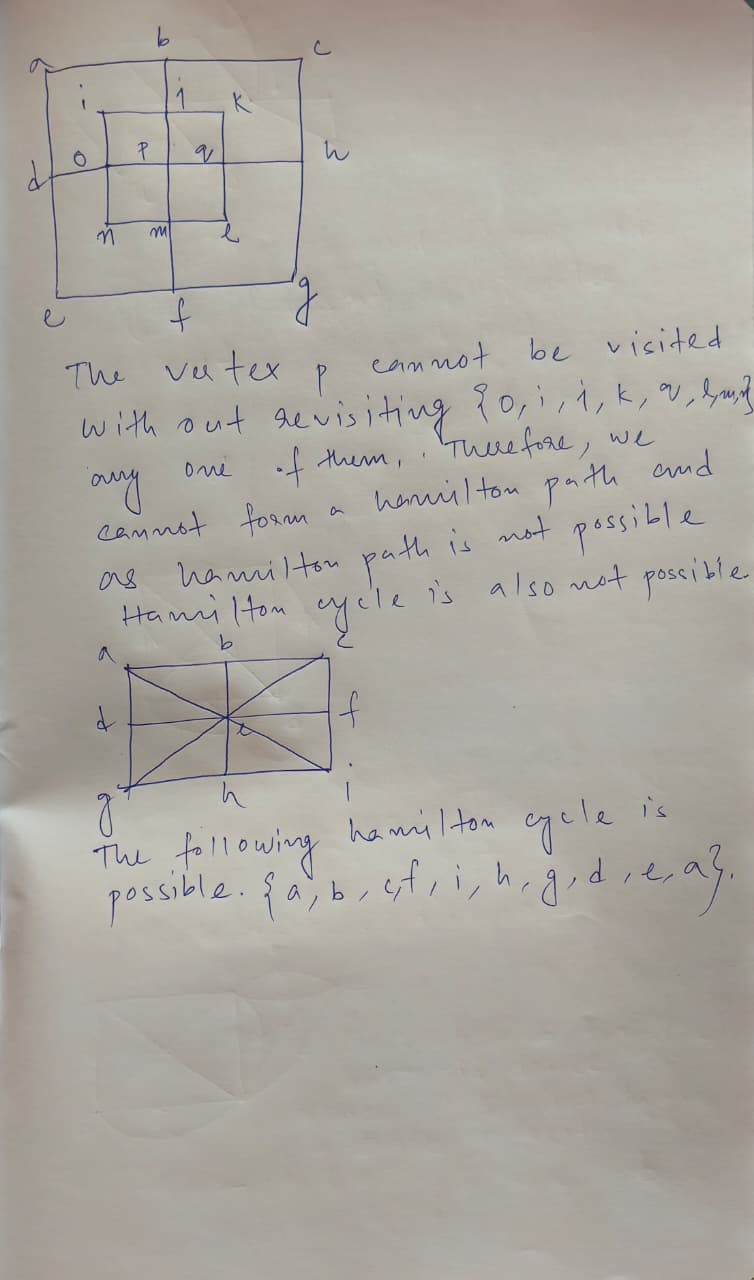 b
a c
i j k
o p q h
d
n m l
e f g
The vertex p cannot be visited
with out revisiting {o, i, j, k, q, l, m, n}
any one of them, . Therefore, we
cannot form a hamilton path and
as hamilton path is not possible
Hamilton cycle is also not possible.
a b c
d e f
g h i
The following hamilton cycle is
possible. {a, b, c, f, i, h, g, d, e, a}.